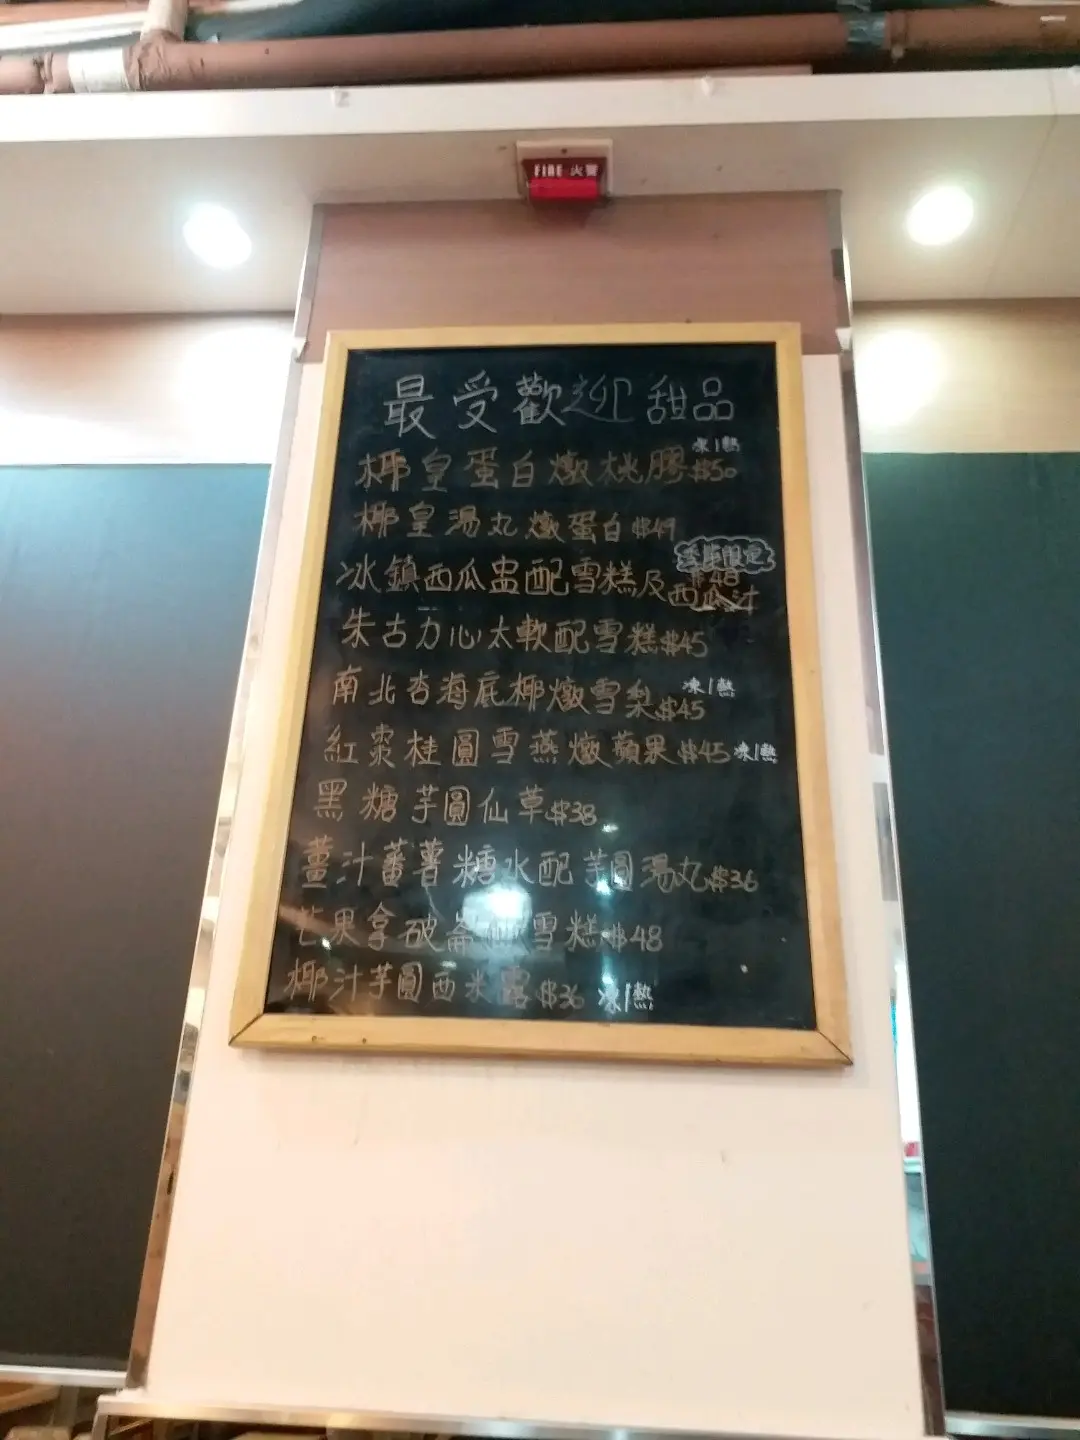 FIRE 火警
最受歡迎甜品
凍/熱
椰皇蛋白燉桃膠$50
椰皇湯丸燉蛋白$49
季節限定
冰鎮西瓜盅配雪糕及西瓜汁 $48
朱古力心太軟配雪糕$45
南北杏海底椰燉雪梨$45 凍/熱
紅棗桂圓雪燕燉蘋果$45 凍/熱
黑糖芋圓仙草$38
薑汁蕃薯糖水配芋圓湯丸$36
芒果拿破崙 雪糕$48
椰汁芋圓西米露$36 凍/熱